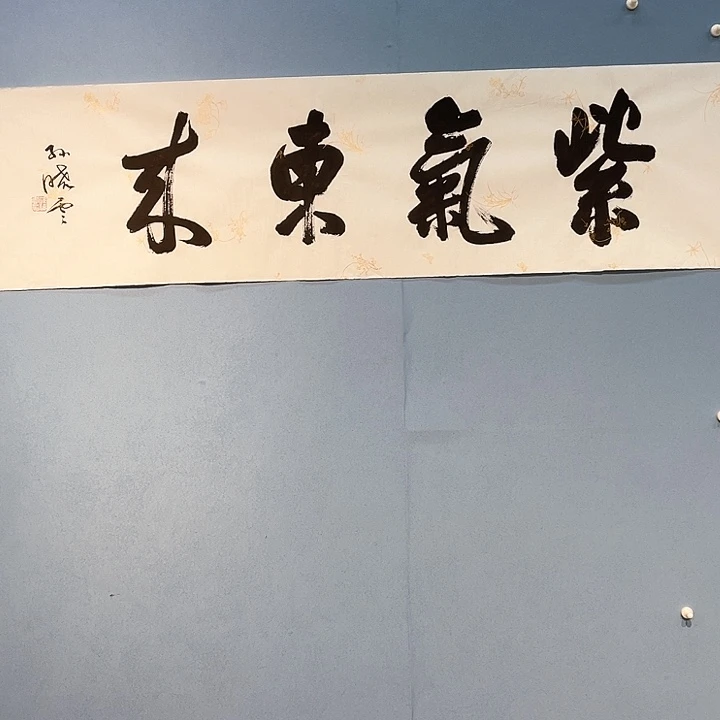 紫氣東来
孙晓云